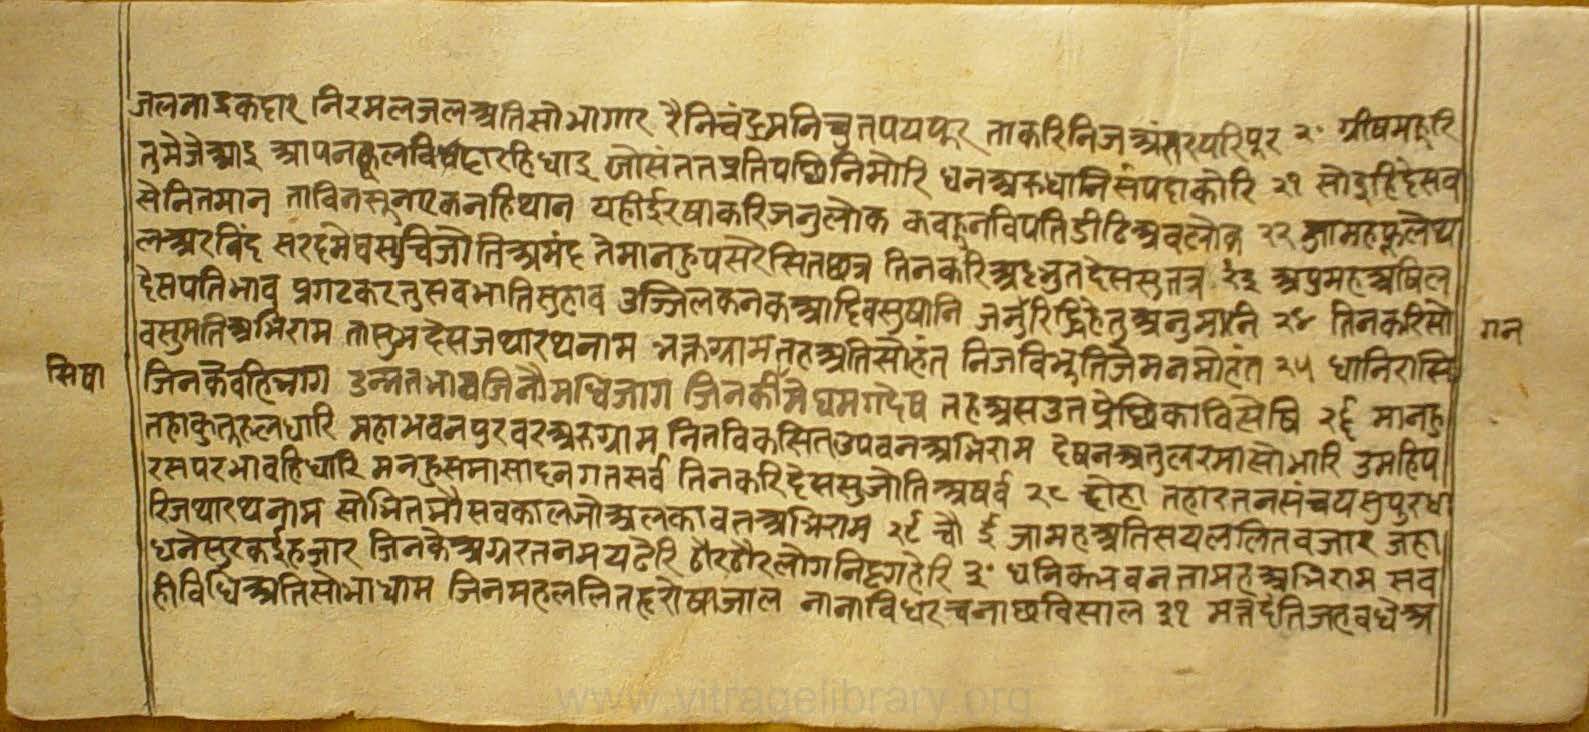 जलनाइकहार निरमलजलअतिसोभागार रैनिचंद्रमनिचुतपयपूर ताकरिनिजअंतरपरिपूर २० ग्रीषममहरि
तुमेजेआइ आपनकूलवि रहिधाइ जोसंततप्रतिपछिनिमोरि धनअरुधानिसंपदाकोरि २१ सोइहिंदेसव
सेनितमान ताविनसूनएकनहिथान यहीईरषाकरिजनुलोक कवहूनविपतिडीठिअवलोक २२ जामहफूलेथ
लअरबिंद सरदमेघसुचिजोतिअमंद तेमानहुपसरेसितछत्र तिनकरिअदभुतदेससुतत्र २३ अपुमहअषिल
देसपतिभाव प्रगटकरतुसवभातिसुहाव उज्जिलकनकआदिवसुषानि जनुंरिद्धिहेतुअनुमानि २४ तिनकरिसो
वसुमतिअभिराम तासुभदेसजथारथनाम भक्तग्रामतहअतिसोहंत निजविभूतिजैमनमोहंत २५ धानिरासि
जिनकेवहिभाग उन्नतभाषजिनौमधिजाग जिनकीमेघमगदेष तहअसउतप्रेछिकाविसेषि २६ मानहु
तहाकुतूहलधारि महाभवनपुरवरअरुग्राम नितविकसितउपवनअभिराम देषनअतुलरमासोभारि उमहिप
रसपरभावहिधारि मनहुसमासादनगतसर्व तिनकरिदेससुजोतिअषर्व २८ दोहा तहारतनसंचयसुपुरधा
रिजथारथनाम सोभितभौसवकालजोअलकावतअभिराम २९ चौ ई जामहअतिसयललितवजार जहा
धनेसुरकईहजार जिनकेअग्ररतनमयढेरि ठौरठौरलोगनिदृगहेरि ३० धनिकभवनतामहअभिराम सव
हीविधिअतिसोभाधाम जिनमहललितझरोषाजाल नानाविधरचनाछविसाल ३१ मत्तदंतिजहवधेअ
सिषा
गन
www.vitragelibrary.org